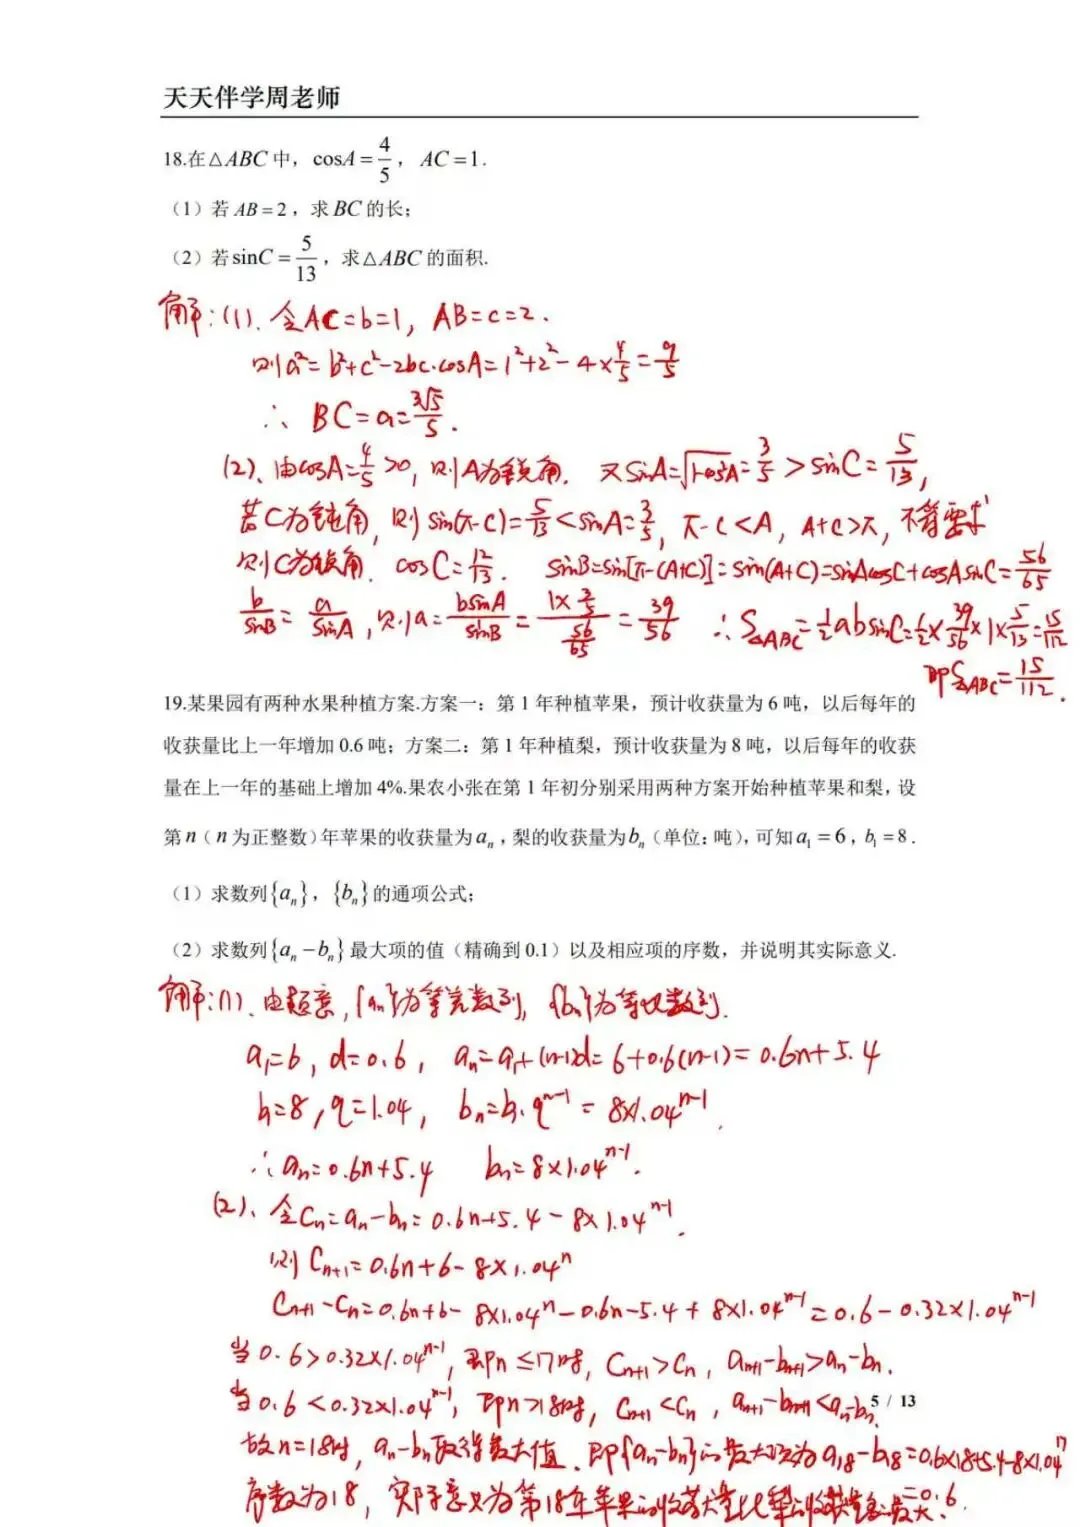 天天伴学周老师
18.在△ABC 中，cosA = 4/5，AC = 1.
（1）若 AB = 2，求 BC 的长；
（2）若 sinC = 5/13，求△ABC 的面积.
解：(1)、令AC=b=1，AB=c=2.
则a²=b²+c²-2bc·cosA=1²+2²-4×4/5=9/5
∴ BC=a=3√5/5.
(2)、由cosA=4/5>0，则A为锐角. 又sinA=√(1-cos²A)=3/5>sinC=5/13，
若C为钝角，则sin(π-C)=5/13<sinA=3/5，π-C<A，A+C>π，不符要求
则C为锐角. cosC=12/13. sinB=sin[π-(A+C)]=sin(A+C)=sinAcosC+cosAsinC=56/65
b/sinB=a/sinA，则a=bsinA/sinB=(1×3/5)/(56/65)=39/56 ∴S△ABC=1/2absinC=1/2×39/56×1×5/13=15/112
即S△ABC=15/112.
19.某果园有两种水果种植方案.方案一：第 1 年种植苹果，预计收获量为 6 吨，以后每年的
收获量比上一年增加 0.6 吨；方案二：第 1 年种植梨，预计收获量为 8 吨，以后每年的收获
量在上一年的基础上增加 4%.果农小张在第 1 年初分别采用两种方案开始种植苹果和梨，设
第 n（n 为正整数）年苹果的收获量为 aₙ，梨的收获量为 bₙ（单位：吨），可知 a₁ = 6，b₁ = 8.
（1）求数列{aₙ}，{bₙ}的通项公式；
（2）求数列{aₙ − bₙ}最大项的值（精确到 0.1）以及相应项的序数，并说明其实际意义.
解：(1)、由题意，{aₙ}为等差数列，{bₙ}为等比数列.
a₁=6，d=0.6，aₙ=a₁+(n-1)d=6+0.6(n-1)=0.6n+5.4
b₁=8，q=1.04，bₙ=b₁·qⁿ⁻¹=8×1.04ⁿ⁻¹.
∴aₙ=0.6n+5.4 bₙ=8×1.04ⁿ⁻¹.
(2)、令Cₙ=aₙ-bₙ=0.6n+5.4-8×1.04ⁿ⁻¹.
则Cₙ₊₁=0.6n+6-8×1.04ⁿ
Cₙ₊₁-Cₙ=0.6n+6-8×1.04ⁿ-0.6n-5.4+8×1.04ⁿ⁻¹=0.6-0.32×1.04ⁿ⁻¹
当0.6>0.32×1.04ⁿ⁻¹，即n≤17时，Cₙ₊₁>Cₙ，aₙ₊₁-bₙ₊₁>aₙ-bₙ.
当0.6<0.32×1.04ⁿ⁻¹，即n≥18时，Cₙ₊₁<Cₙ，aₙ₊₁-bₙ₊₁<aₙ-bₙ.
5 / 13
故n=18时，aₙ-bₙ取得最大值. 即{aₙ-bₙ}的最大项为a₁₈-b₁₈=0.6×18+5.4-8×1.04¹⁷
=0.6.
序数为18，实际意义为第18年苹果的收获量比梨的收获量多最大.